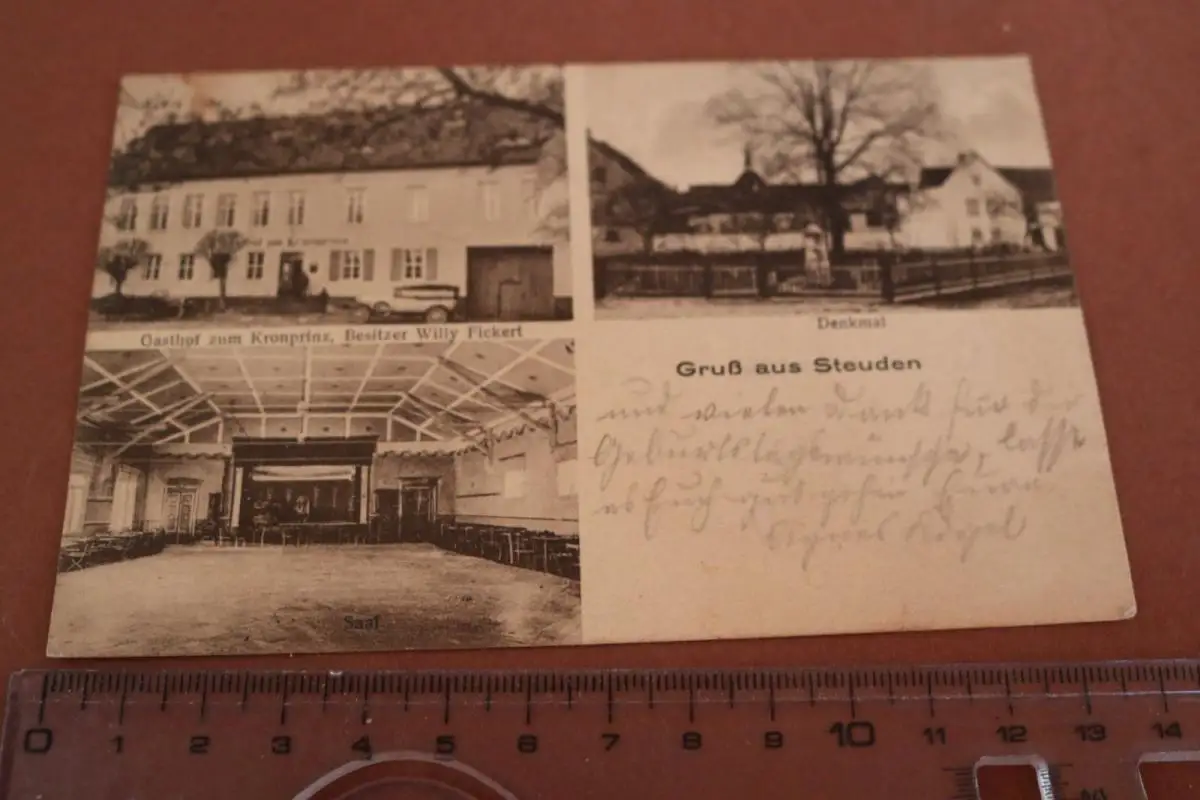 Gasthof zum Kronprinz, Besitzer Willy Fickert
Denkmal
Gruß aus Steuden
und vielen Dank für die
Geburtstagswünsche, lasst
es Euch gut gehen Eure
Agnes
Saal
0 1 2 3 4 5 6 7 8 9 10 11 12 13 14